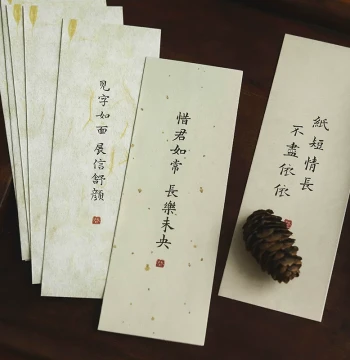 见字如面 展信舒颜
惜君如常 長樂未央
紙短情長
不盡依依